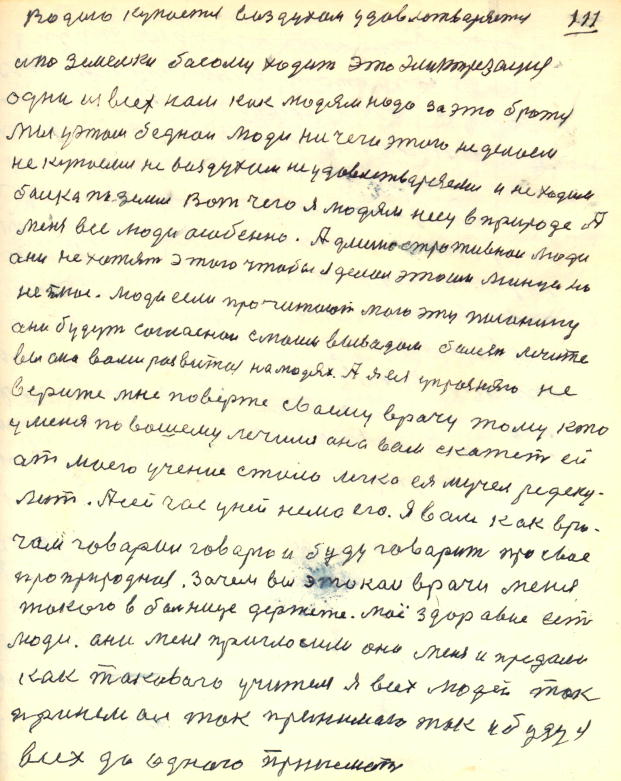 водою купается воздухом удовлотваряется 111
и по земелки басому ходит это электрезация
одни из всех нам как людям надо за это браться
Мы уэтом бедном люди ничего этого неделоем
не купаемся не воздухам неудовлетваряемся и неходим
по земли Вот чего я людям несу в природе А
меня все люди особенно. Администротивнои люди
ани не хотят этого чтобы я делал
люди если прочитают мою эту
ани будут согласнои смоим вывадом болезн лечите
вы она вами развитая на людях. А я ея упроняю не
верите мне поверте своему врачу тому кто
у меня по вашему лечился она вам скажет ей
ат моего учение стало легко ея мучел редеку-
лит. А сей час уней нема его. Я вам как вра-
чам говарил говарю и буду говарит про свае
проприродная. Зачем вы этокаи врачи меня
такого в болнице держете. Маё здоравие ест
люди. ани меня приглосили они меня и предали
как таковаго учителя я всех людей так
принемал так принимаю так и буду я
всех до одного принемать